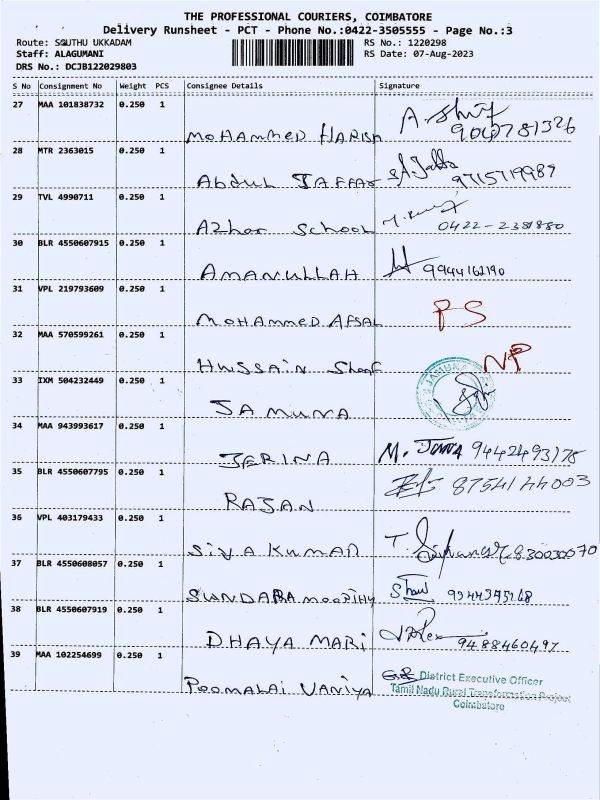 THE PROFESSIONAL COURIERS, COIMBATORE
Delivery Runsheet - PCT - Phone No.:0422-3505555 - Page No.:3
Route: SOUTHU UKKADAM RS No.: 1220298
Staff: ALAGUMANI RS Date: 07-Aug-2023
DRS No.: DCJB122029803
S No Consignment No Weight PCS Consignee Details Signature
27 MAA 101838732 0.250 1
MOHAMMED HARISH
28 MTR 2363015 0.250 1
Abdul JAFFAR 9715719987
29 TVL 4990711 0.250 1
Azhar School 0422-2381880
30 BLR 4550607915 0.250 1
AMANULLAH 9944162190
31 VPL 219793609 0.250 1 PS
MOHAMMED AFSAL
32 MAA 570599261 0.250 1 NP
HUSSAIN
33 IXM 504232449 0.250 1
JAMUNA
34 MAA 943993617 0.250 1
JERINA M. 9442493178
35 BLR 4550607795 0.250 1 8754144003
RAJAN
36 VPL 403179433 0.250 1
SIVA KUMAR T.
37 BLR 4550608057 0.250 1
SUNDARA MOORTHY
38 BLR 4550607919 0.250 1
DHAYA MARI 9488460497
39 MAA 102254699 0.250 1
POOMALAI VANIYA
District Executive Officer
Tamil Nadu Rural Transformation Project
Coimbatore